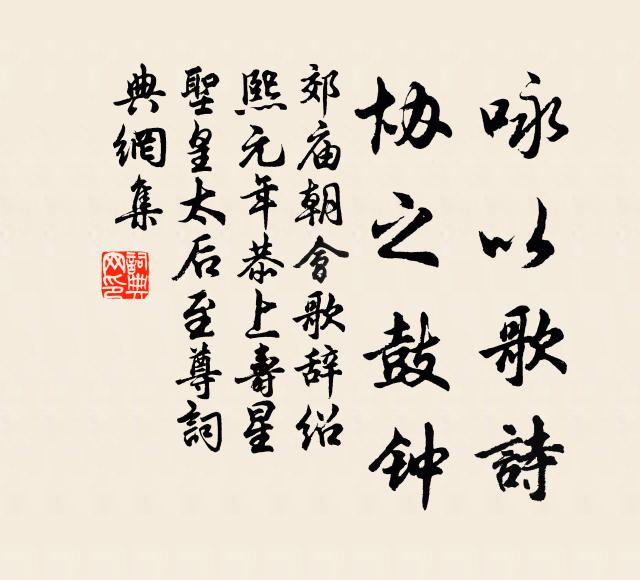 咏以歌詩
协之鼓钟
郊庙朝會歌辞绍
熙元年恭上壽星
聖皇太后至尊詞
典網集
詞典网印